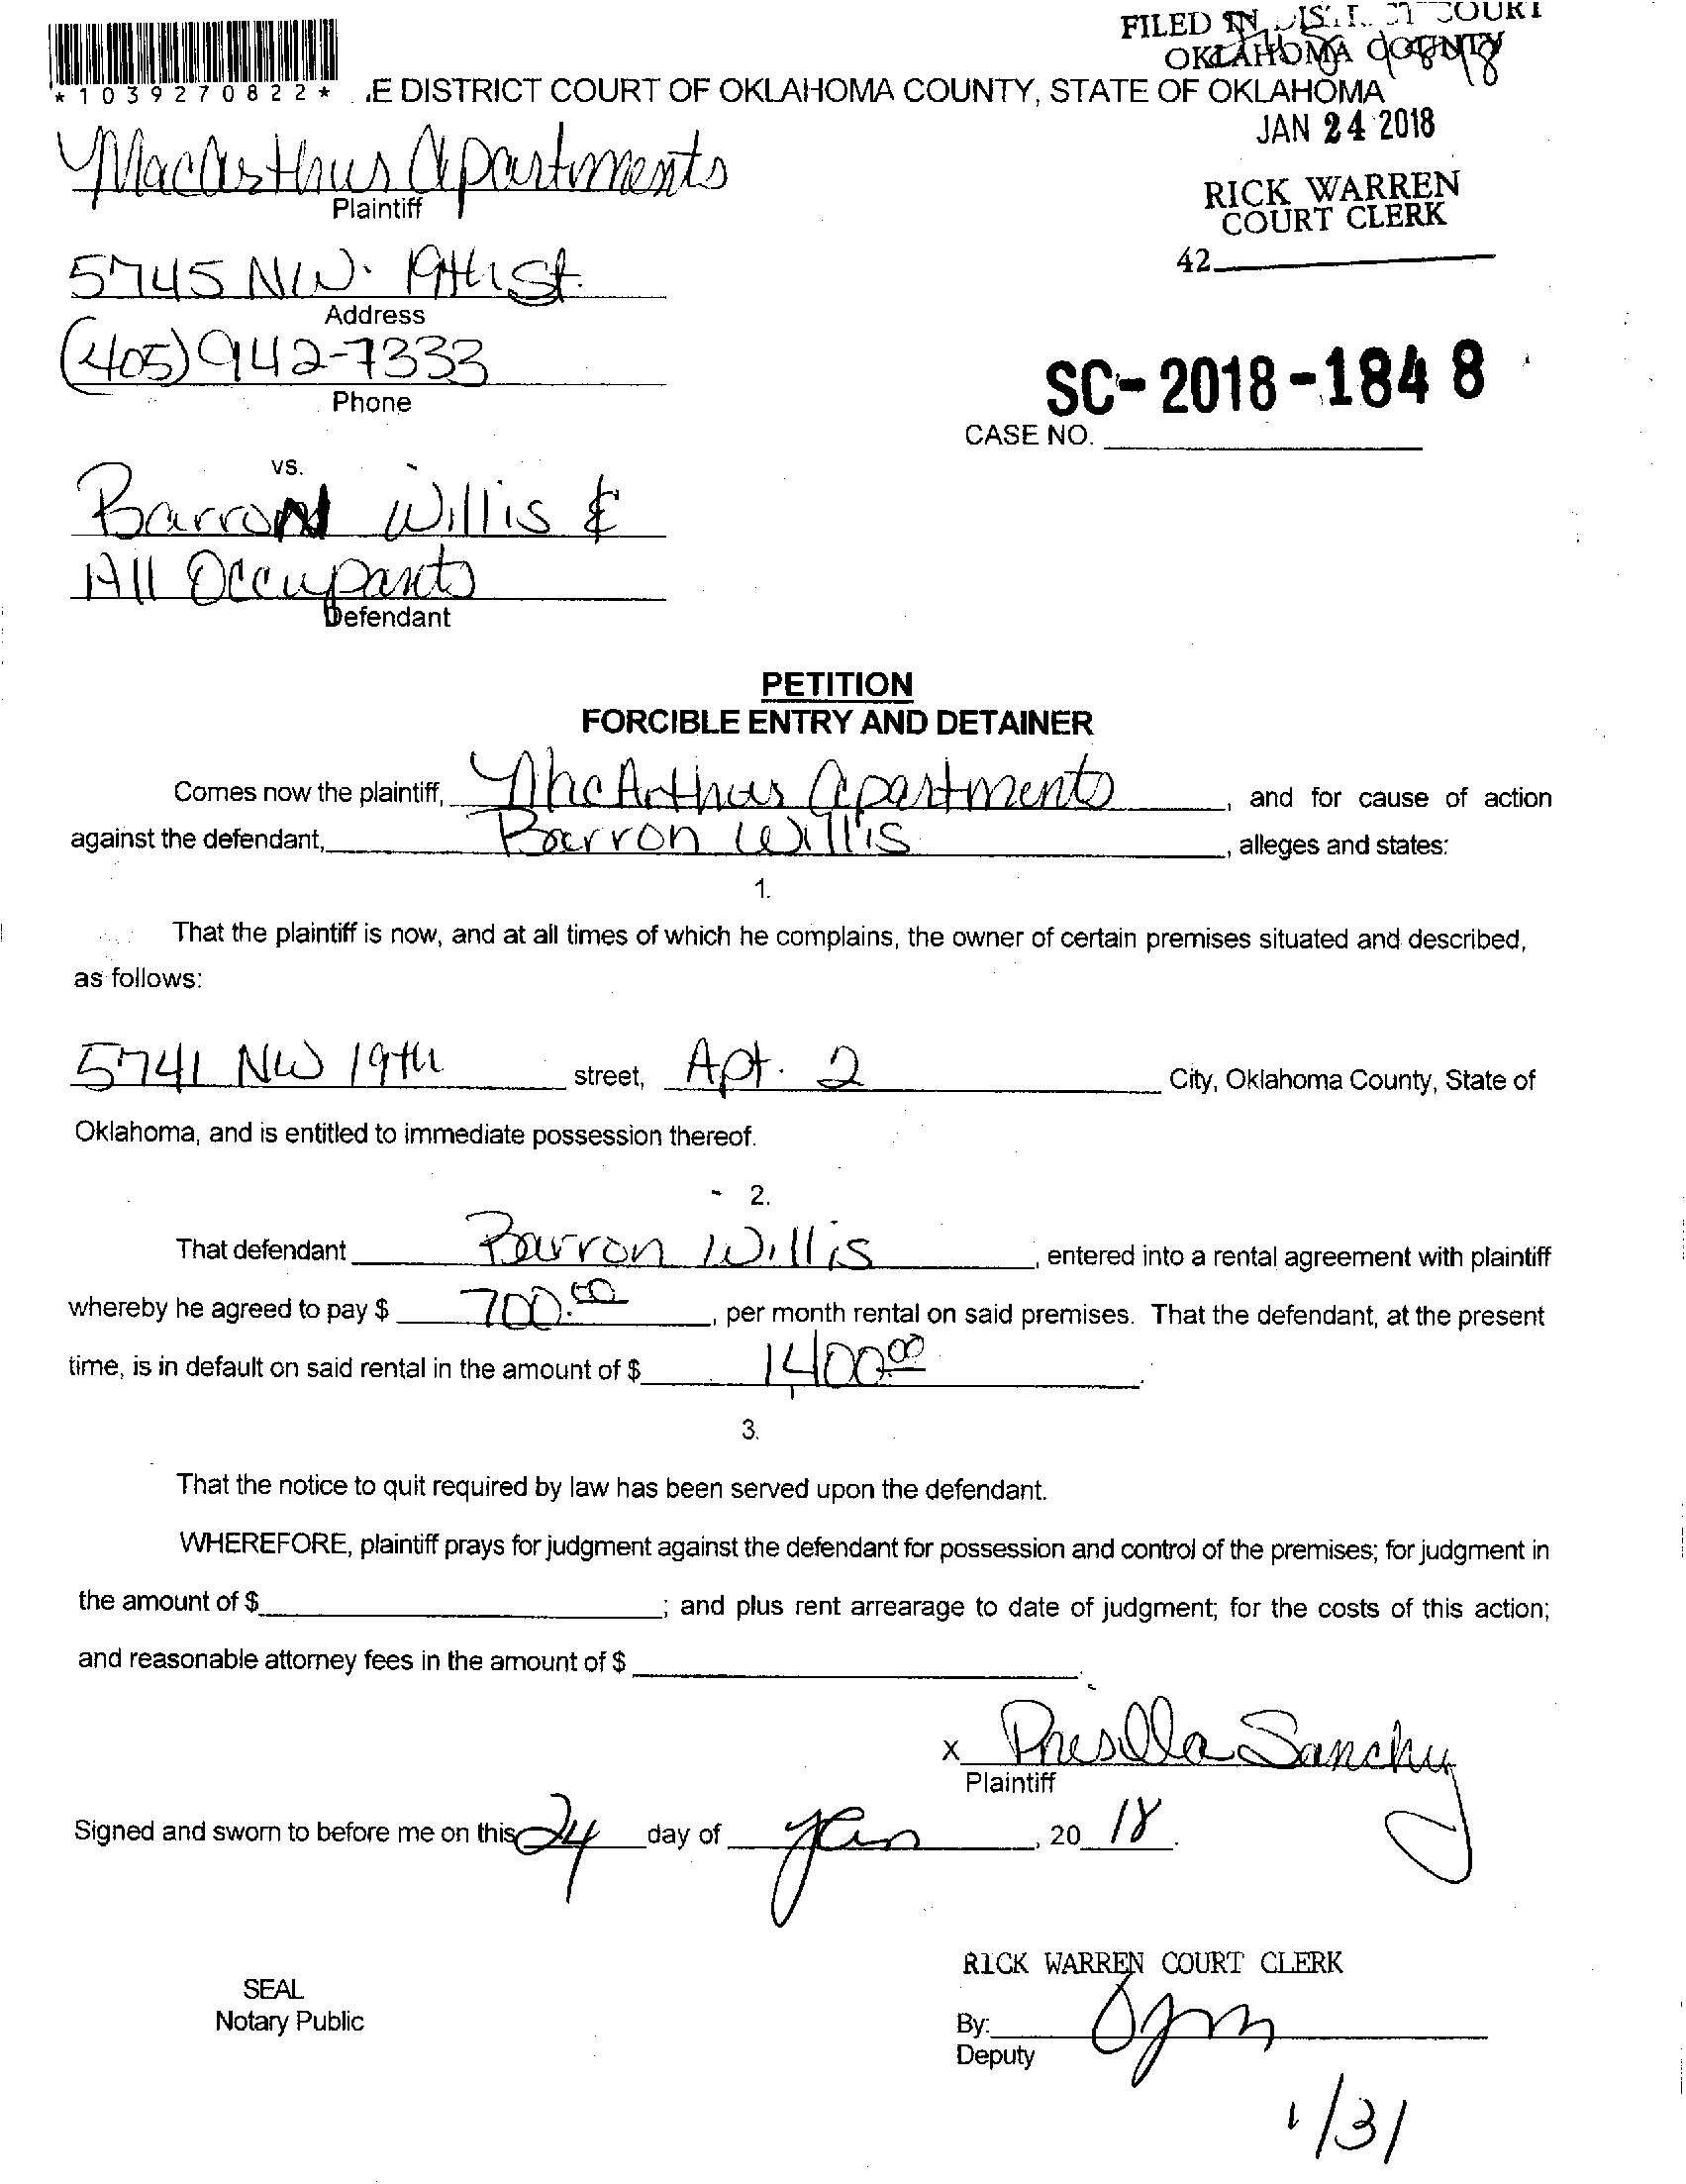 FILED IN COURT
OKLAHOMA COUNTY
*1039270822* .E DISTRICT COURT OF OKLAHOMA COUNTY, STATE OF OKLAHOMA
JAN 24 2018
MacArthur Apartments
Plaintiff
RICK WARREN
COURT CLERK
42
5745 NW. 19th St.
Address
(405) 942-7333
Phone
SC-2018-1848
CASE NO.
vs.
Barron Willis &
All Occupants
Defendant
PETITION
FORCIBLE ENTRY AND DETAINER
Comes now the plaintiff, MacArthur Apartments, and for cause of action
against the defendant, Barron Willis, alleges and states:
1.
That the plaintiff is now, and at all times of which he complains, the owner of certain premises situated and described,
as follows:
5741 NW 19th street, Apt. 2 City, Oklahoma County, State of
Oklahoma, and is entitled to immediate possession thereof.
2.
That defendant Barron Willis, entered into a rental agreement with plaintiff
whereby he agreed to pay $ 700.00, per month rental on said premises. That the defendant, at the present
time, is in default on said rental in the amount of $ 1400.00.
3.
That the notice to quit required by law has been served upon the defendant.
WHEREFORE, plaintiff prays for judgment against the defendant for possession and control of the premises; for judgment in
the amount of $ ; and plus rent arrearage to date of judgment; for the costs of this action;
and reasonable attorney fees in the amount of $ .
x Prisilla Sanchez
Plaintiff
Signed and sworn to before me on this 24 day of Jan, 20 18.
RICK WARREN COURT CLERK
SEAL
Notary Public
By:
Deputy
1/31